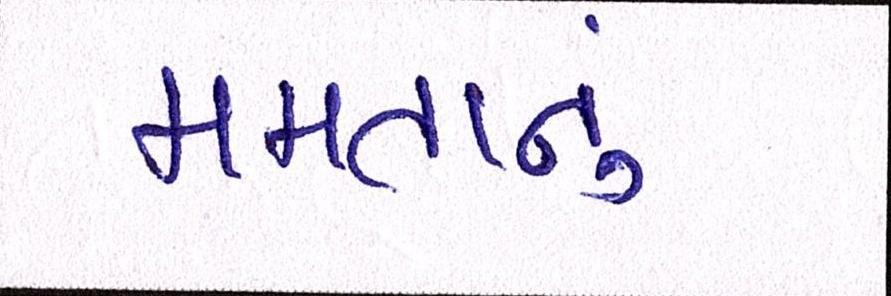 મમતાનું